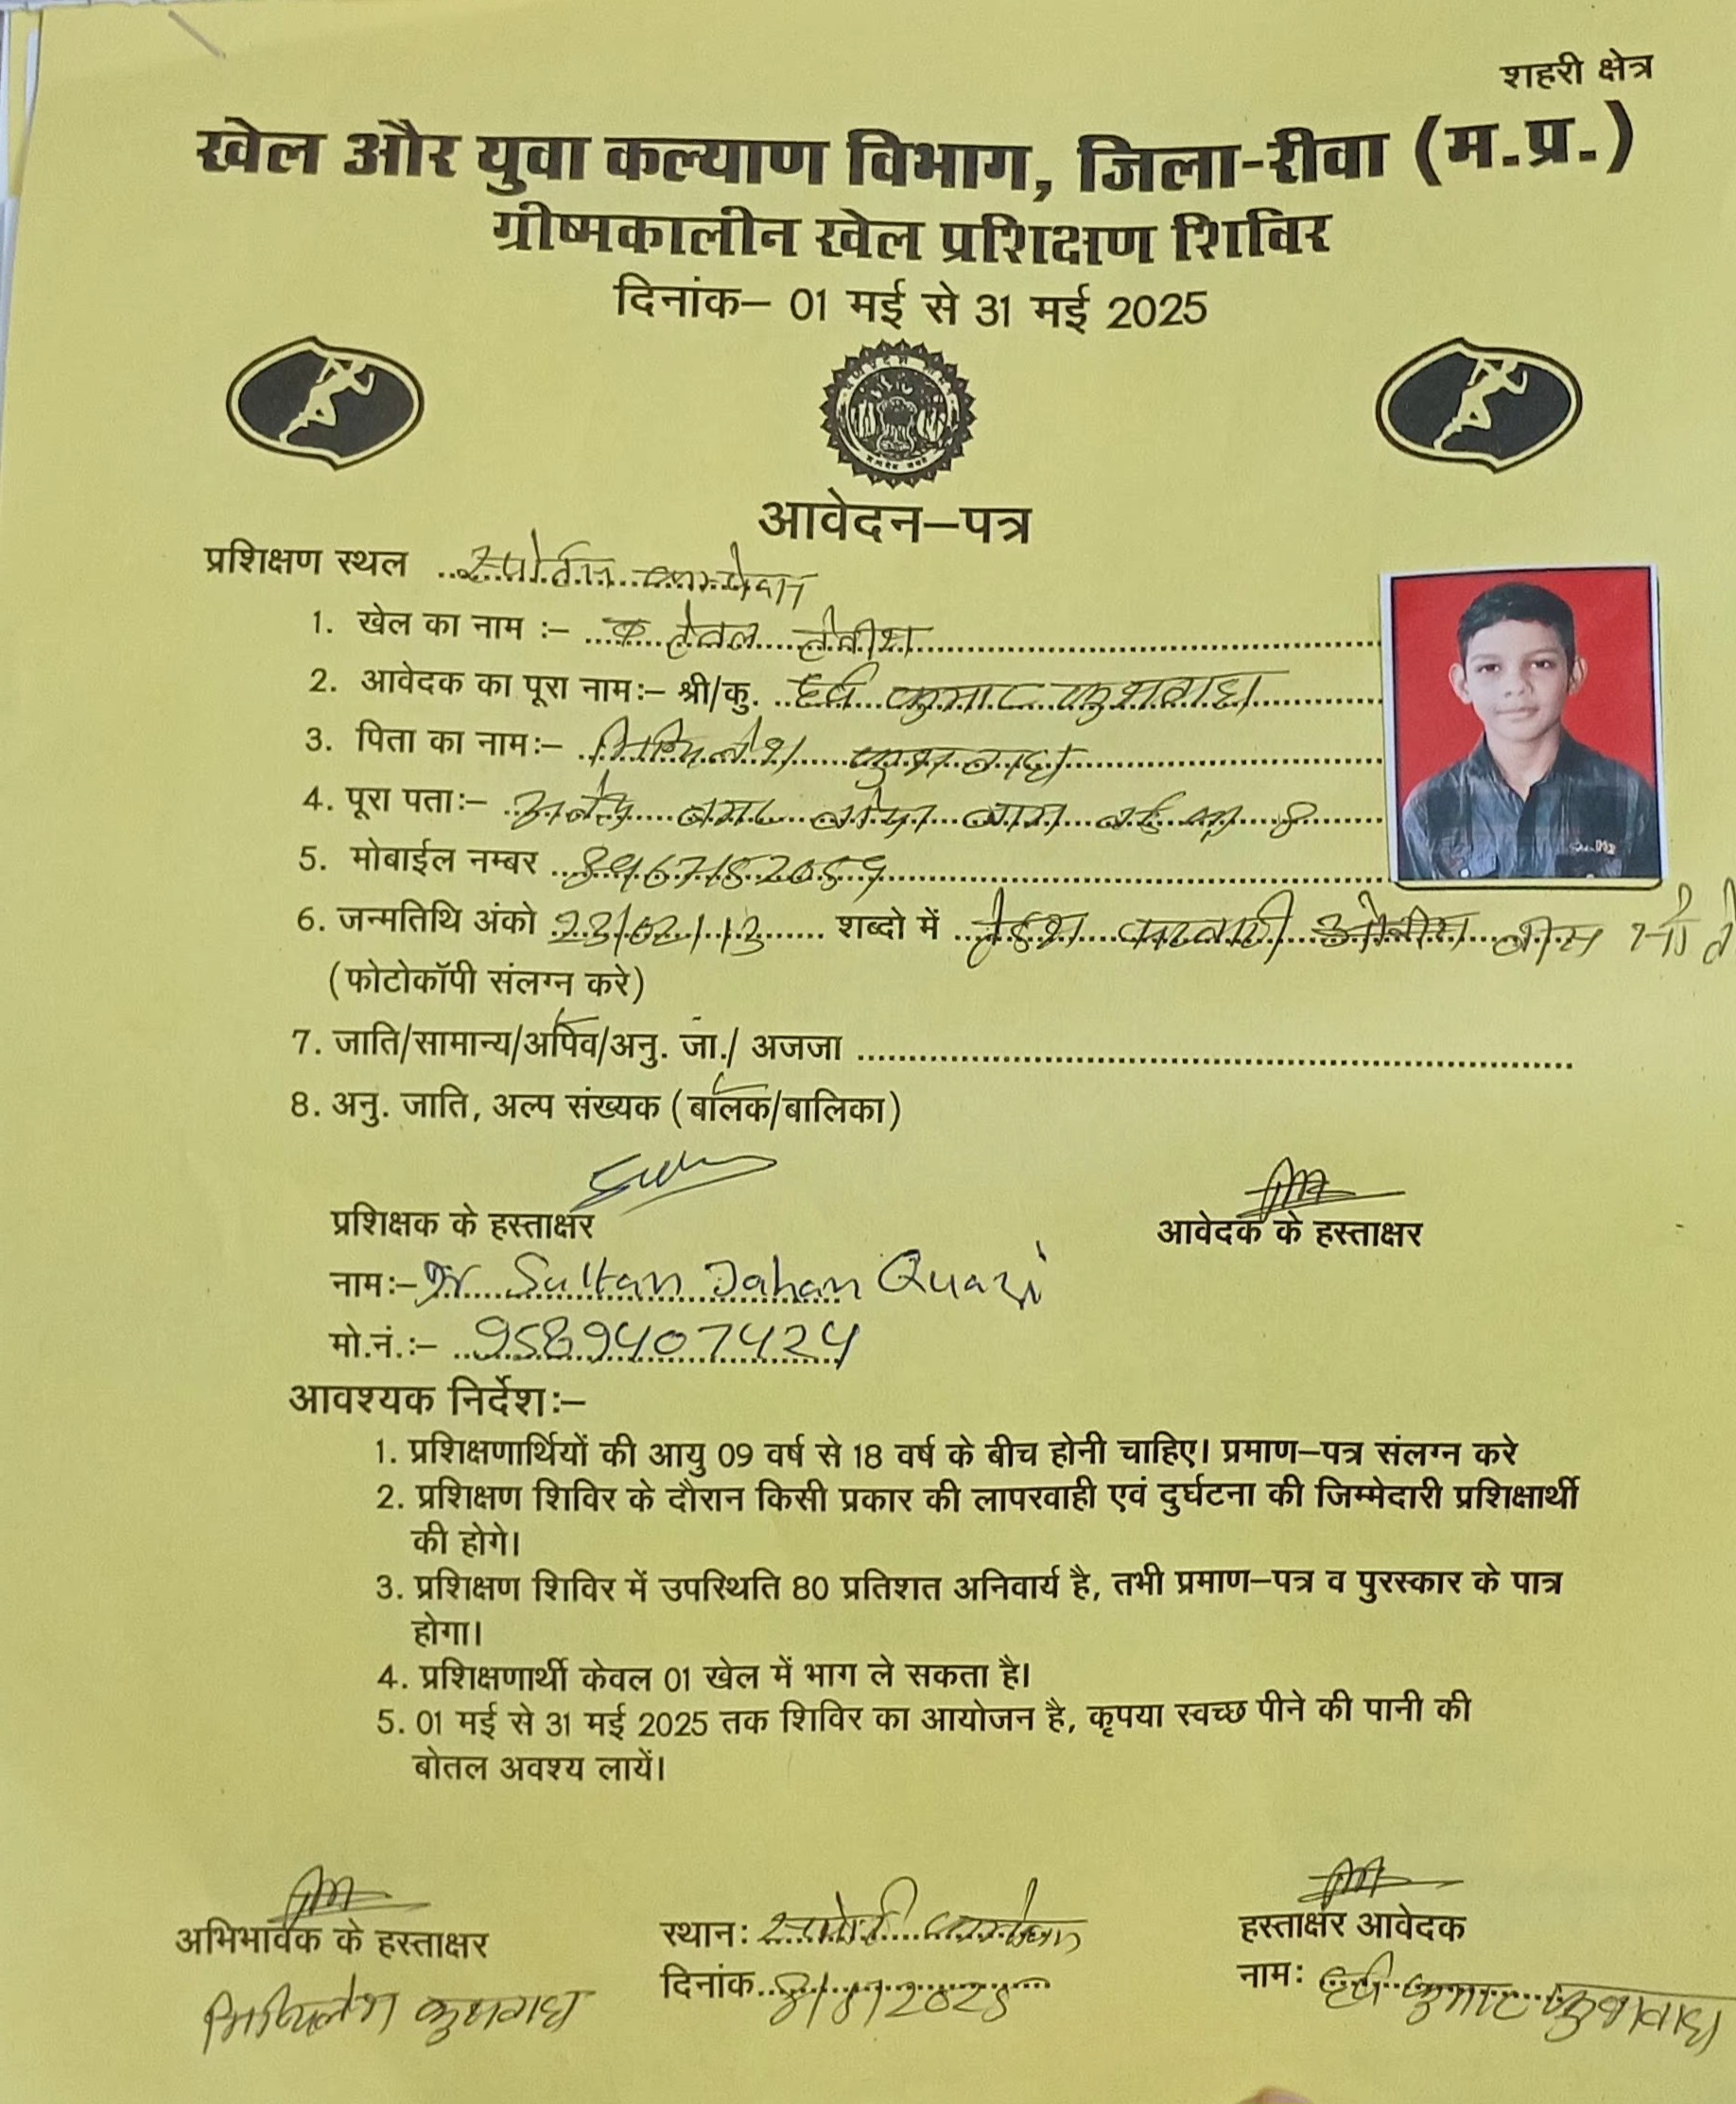 शहरी क्षेत्र
खेल और युवा कल्याण विभाग, जिला-रीवा (म.प्र.)
ग्रीष्मकालीन खेल प्रशिक्षण शिविर
दिनांक– 01 मई से 31 मई 2025
आवेदन–पत्र
प्रशिक्षण स्थल
1. खेल का नाम :– टेबल टेनिस
2. आवेदक का पूरा नाम:– श्री/कु. हर्ष कुमार कुशवाहा
3. पिता का नाम:– मिथिलेश कुशवाहा
4. पूरा पता:– नगर बोदा बाग 8
5. मोबाईल नम्बर
6. जन्मतिथि अंको 23/02/13 शब्दो में फरवरी बीस सौ
(फोटोकॉपी संलग्न करे)
7. जाति/सामान्य/अपिव/अनु. जा./ अजजा
8. अनु. जाति, अल्प संख्यक (बालक/बालिका)
प्रशिक्षक के हस्ताक्षर
आवेदक के हस्ताक्षर
नाम:– Dr Sultan Jahan Quazi
मो.नं.:– 9589407424
आवश्यक निर्देश:–
1. प्रशिक्षणार्थियों की आयु 09 वर्ष से 18 वर्ष के बीच होनी चाहिए। प्रमाण–पत्र संलग्न करे
2. प्रशिक्षण शिविर के दौरान किसी प्रकार की लापरवाही एवं दुर्घटना की जिम्मेदारी प्रशिक्षार्थी
की होगे।
3. प्रशिक्षण शिविर में उपस्थिति 80 प्रतिशत अनिवार्य है, तभी प्रमाण–पत्र व पुरस्कार के पात्र
होगा।
4. प्रशिक्षणार्थी केवल 01 खेल में भाग ले सकता है।
5. 01 मई से 31 मई 2025 तक शिविर का आयोजन है, कृपया स्वच्छ पीने की पानी की
बोतल अवश्य लायें।
अभिभावक के हस्ताक्षर
मिथिलेश कुशवाहा
स्थान:
दिनांक
हस्ताक्षर आवेदक
नाम: हर्ष कुमार कुशवाहा